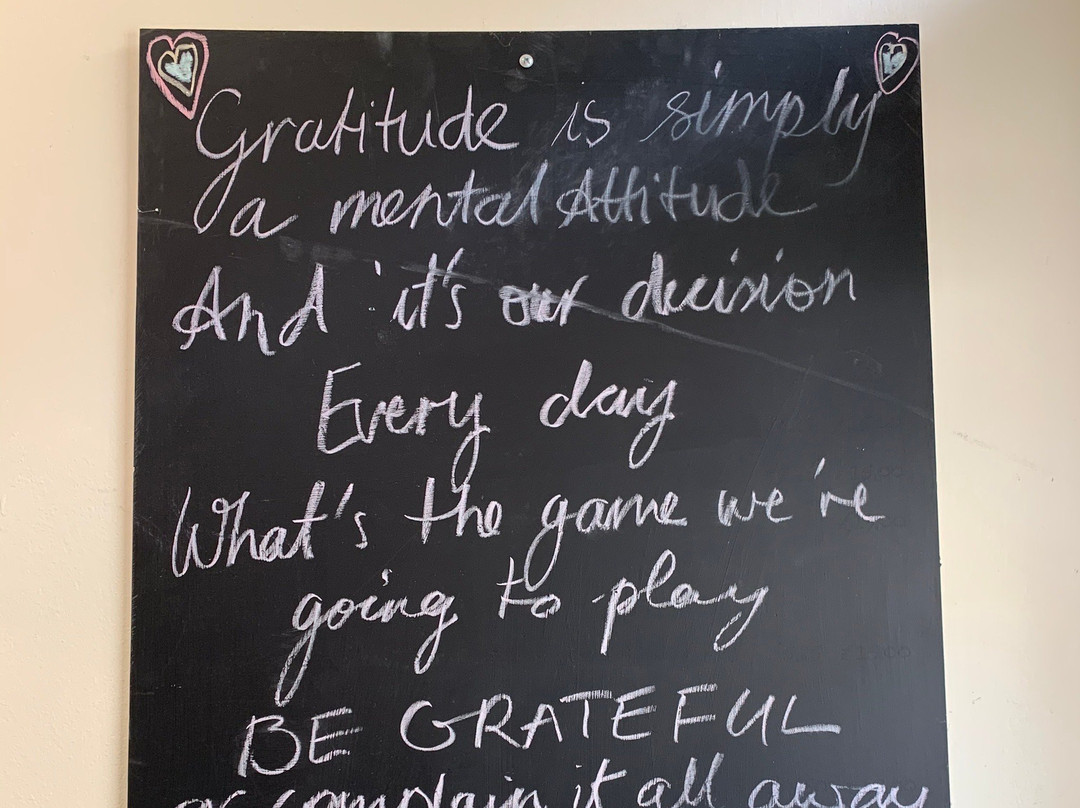 Gratitude is simply
a mental Attitude
And it's our decision
Every day
What's the game we're
going to play
BE GRATEFUL
or complain it all away